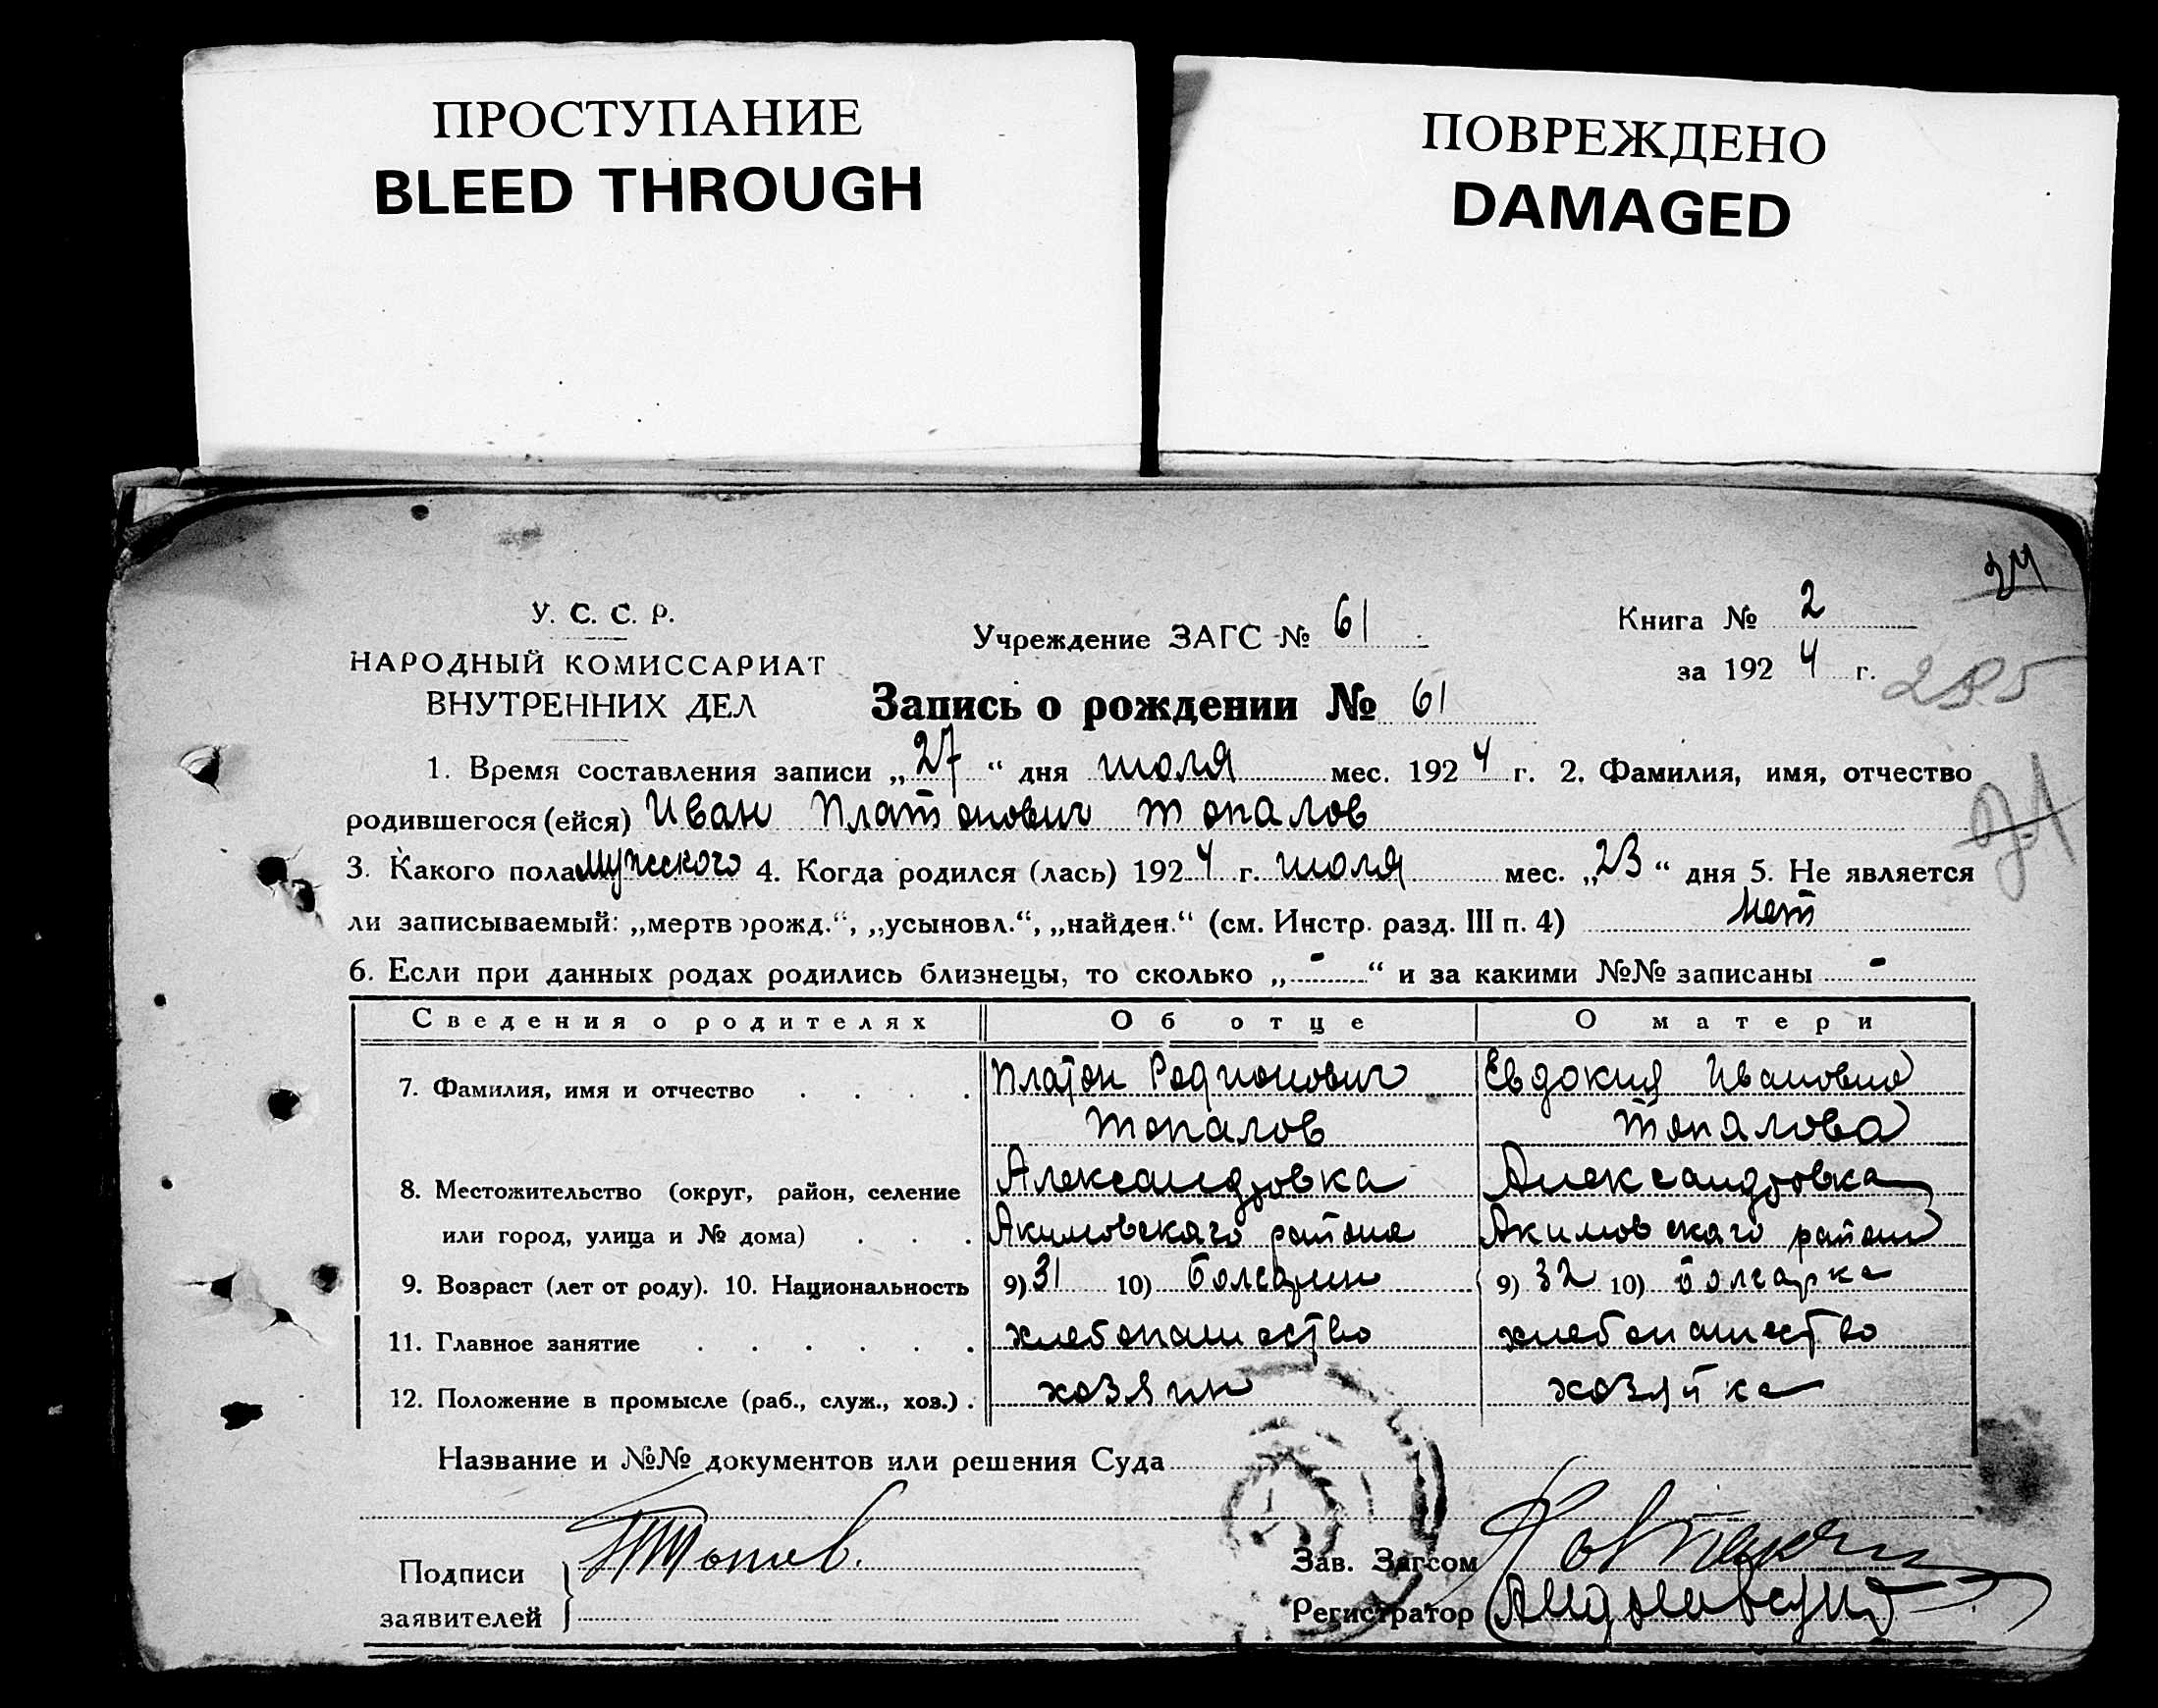 ПРОСТУПАНИЕ
BLEED THROUGH
ПОВРЕЖДЕНО
DAMAGED
У. С. С. Р.
НАРОДНЫЙ КОМИССАРИАТ
ВНУТРЕННИХ ДЕЛ
Учреждение ЗАГС № 61
Запись о рождении № 61
Книга № 2
за 1924 г.
1. Время составления записи „27“ дня июля мес. 1924 г. 2. Фамилия, имя, отчество
родившегося (ейся) Иван Платонович Топалов
3. Какого пола мужского 4. Когда родился (лась) 1924 г. июля мес. „23“ дня 5. Не является
ли записываемый: „мертворожд.“, „усыновл.“, „найден.“ (см. Инстр. разд. III п. 4) нет
6. Если при данных родах родились близнецы, то сколько „-“ и за какими №№ записаны -
Сведения о родителях Об отце О матери
7. Фамилия, имя и отчество . . . . Платон Родионович Евдокия Ивановна
Топалов Топалова
8. Местожительство (округ, район, селение Александровка Александровка
или город, улица и № дома) . . . Акимовскаго района Акимовскаго района
9. Возраст (лет от роду). 10. Национальность 9) 31 10) болгарин 9) 32 10) болгарка
11. Главное занятие . . . . . . хлебопашество хлебопашество
12. Положение в промысле (раб., служ., хоз.) . хозяин хозяйка
Название и №№ документов или решения Суда
Подписи
заявителей
Зав. Загсом
Регистратор